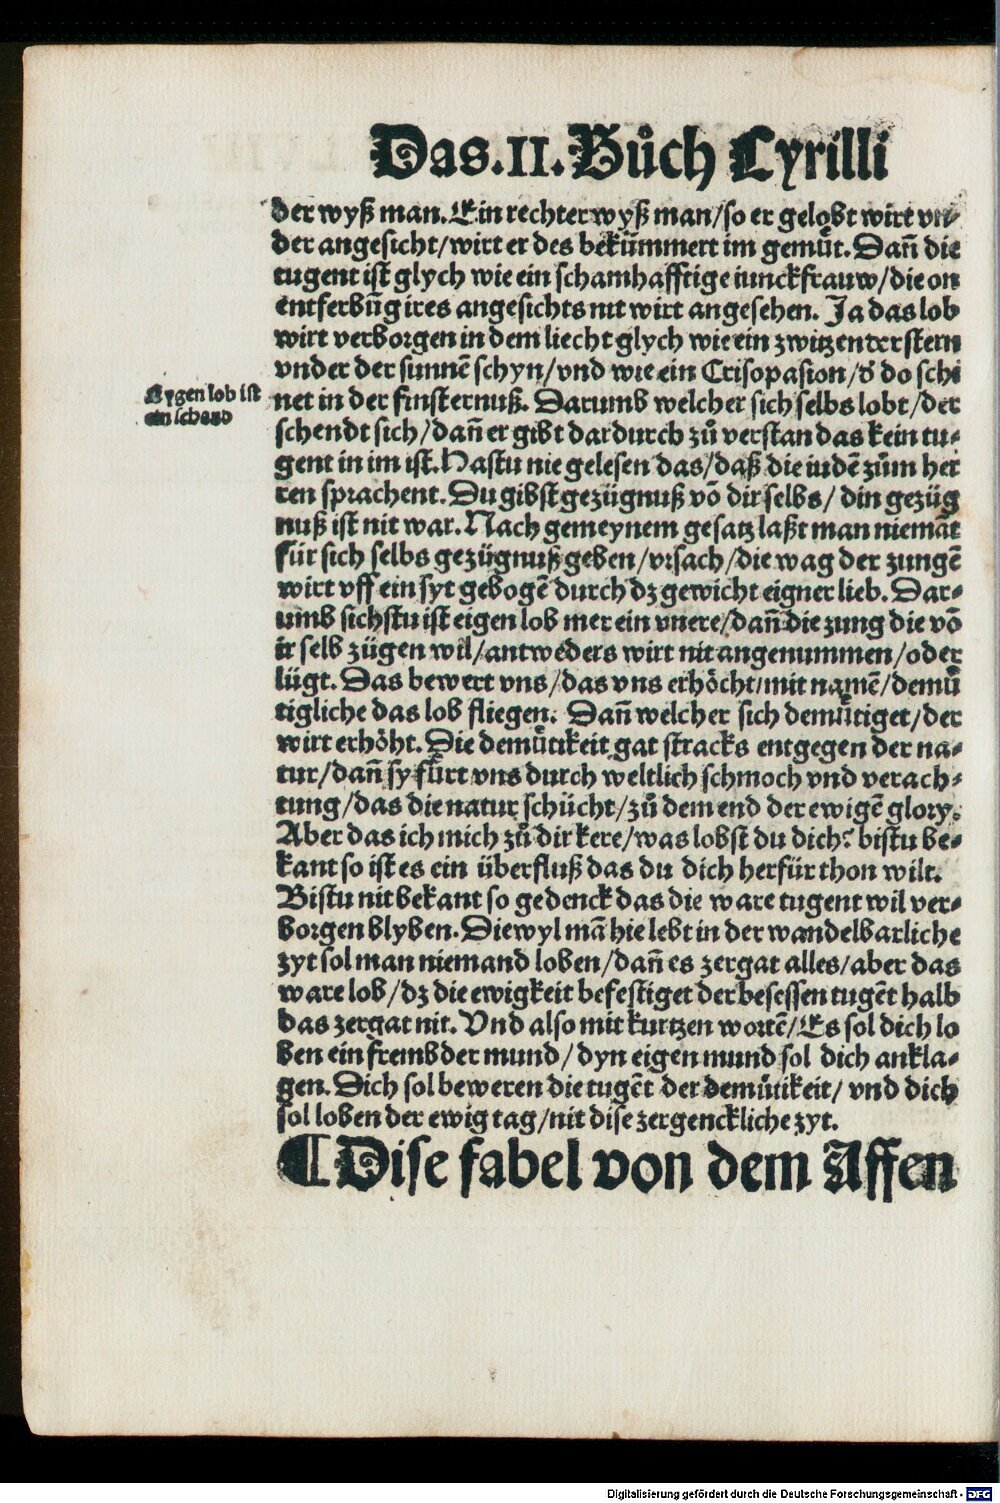 Das.II.Bůch Cyrilli
der wyß man. Ein rechter wyß man/so er gelobt wirt vn⸗
der angesicht/wirt er des bekümmert im gemuͤt. Dañ die
tugent ist glych wie ein schamhafftige iunckfrauw/die on
entferbũg ires angesichts nit wirt angesehen. Ja das lob
wirt verborgen in dem liecht glych wie ein zwitzenter stern
vnder der sunnẽ schyn/vnd wie ein Crisopasion/ď do schi
net in der finsternuß. Darumb welcher sich selbs lobt/der
schendt sich/dañ er gibt dardurch zů verstan das kein tu⸗
gent in im ist. Hastu nie gelesen das/daß die iudẽ zům her
ren sprachent. Du gibst gezügnuß võ dir selbs/ din gezüg
nuß ist nit war. Nach gemeynem gesatz laßt man niemãt
für sich selbs gezügnuß geben/vrsach/die wag der zungẽ
wirt vff ein syt gebogẽ durch dz gewicht eigner lieb. Dar⸗
umb sichstu ist eigen lob mer ein vnere/dañ die zung die võ
ir selb zügen wil/antweders wirt nit angenummen/oder
lügt. Das bewert vns/das vns erhöcht/mit namẽ/demuͤ
tigliche das lob fliegen. Dañ welcher sich demuͤtiget/der
wirt erhöht. Die demuͤtikeit gat stracks entgegen der na⸗
tur/dañ sy fuͤrt vns durch weltlich schmoch vnd verach⸗
tung/das die natur schücht/zů dem end der ewigẽ glory.
Aber das ich mich zů dir kere/was lobst du dich? bistu be⸗
kant so ist es ein überfluß das du dich herfür thon wilt.
Bistu nit bekant so gedenck das die ware tugent wil ver⸗
borgen blyben. Die wyl mã hie lebt in der wandelbarliche
zyt sol man niemand loben/dañ es zergat alles/aber das
ware lob/dz die ewigkeit befestiget der besessen tugẽt halb
das zergat nit. Vnd also mit kurtzen wortẽ/Es sol dich lo
ben ein frembder mund/dyn eigen mund sol dich ankla⸗
gen. Dich sol beweren die tugẽt der demuͤtikeit/ vnd dich
sol loben der ewig tag/nit dise zergenckliche zyt.
Eygen lob ist
ein schand
¶Dise fabel von dem Affen
Digitalisierung gefördert durch die Deutsche Forschungsgemeinschaft - DFG